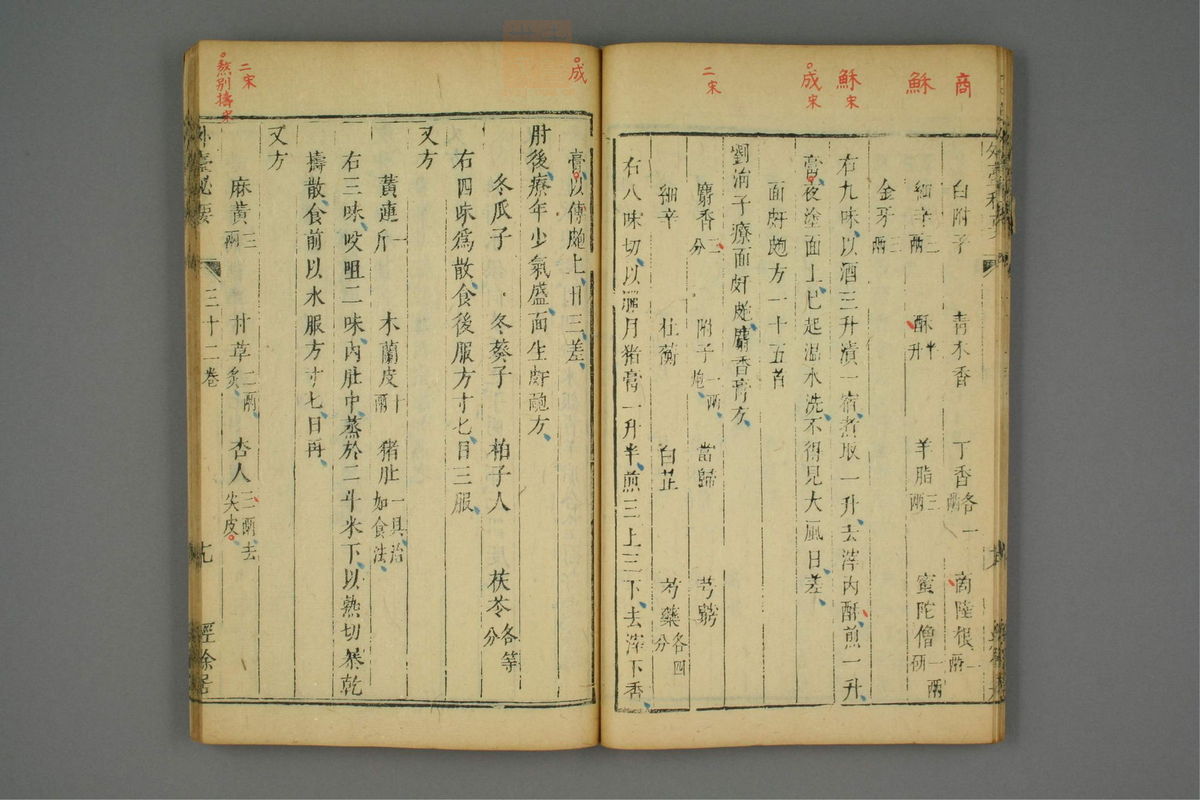 商
蘇
蘇宋
成宋
二宋
白附子 青木香 丁香各一兩 商陸根一兩
細辛三兩 酥半升 羊脂三兩 蜜陀僧一兩研
金牙三兩
右九味以酒三升漬一宿煮取一升去滓内酥煎一升
膏夜塗面上旦起温水洗不得見大風日差
面皯皰方一十五首
劉涓子療面皯皰麝香膏方
麝香三分 附子一兩炮 當歸 芎藭
細辛 杜蘅 白芷 芍藥各四分
右八味切以臘月猪膏一升半煎三上三下去滓下香
成
二宋
熬别擣宋
膏以傅皰上廿三差
肘後療年少氣盛面生皯皰方
冬瓜子 冬葵子 柏子人 茯苓各等分
右四味爲散食後服方寸匕日三服
又方
黄連一斤 木蘭皮十兩 猪肚一具治如食法
右三味㕮咀二味内肚中蒸於二斗米下以熟切暴乾
擣散食前以水服方寸匕日再
又方
麻黄三兩 甘草二兩炙 杏人三兩去尖皮
外臺秘要 三十二卷 七 經餘居